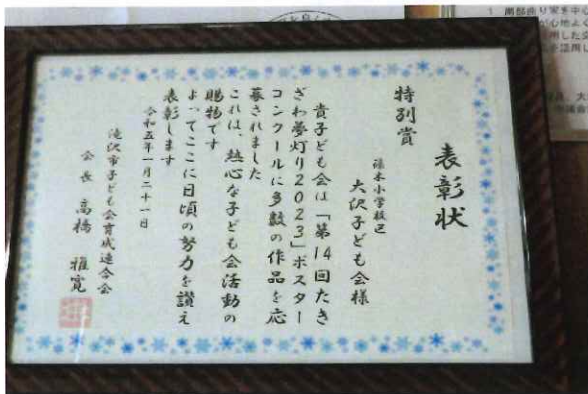 表彰状
特別賞
滝沢小学校区
大沢子ども会様
貴子ども会は「第14回たき
ざわ夢灯り2023」ポスター
コンクールに多数の作品を応
募されました
これは、熱心な子ども会活動の
賜物です
よってここに日頃の努力を讃え
表彰します
令和五年一月二十一日
滝沢市子ども会育成連合会
会長 高橋 雅寛